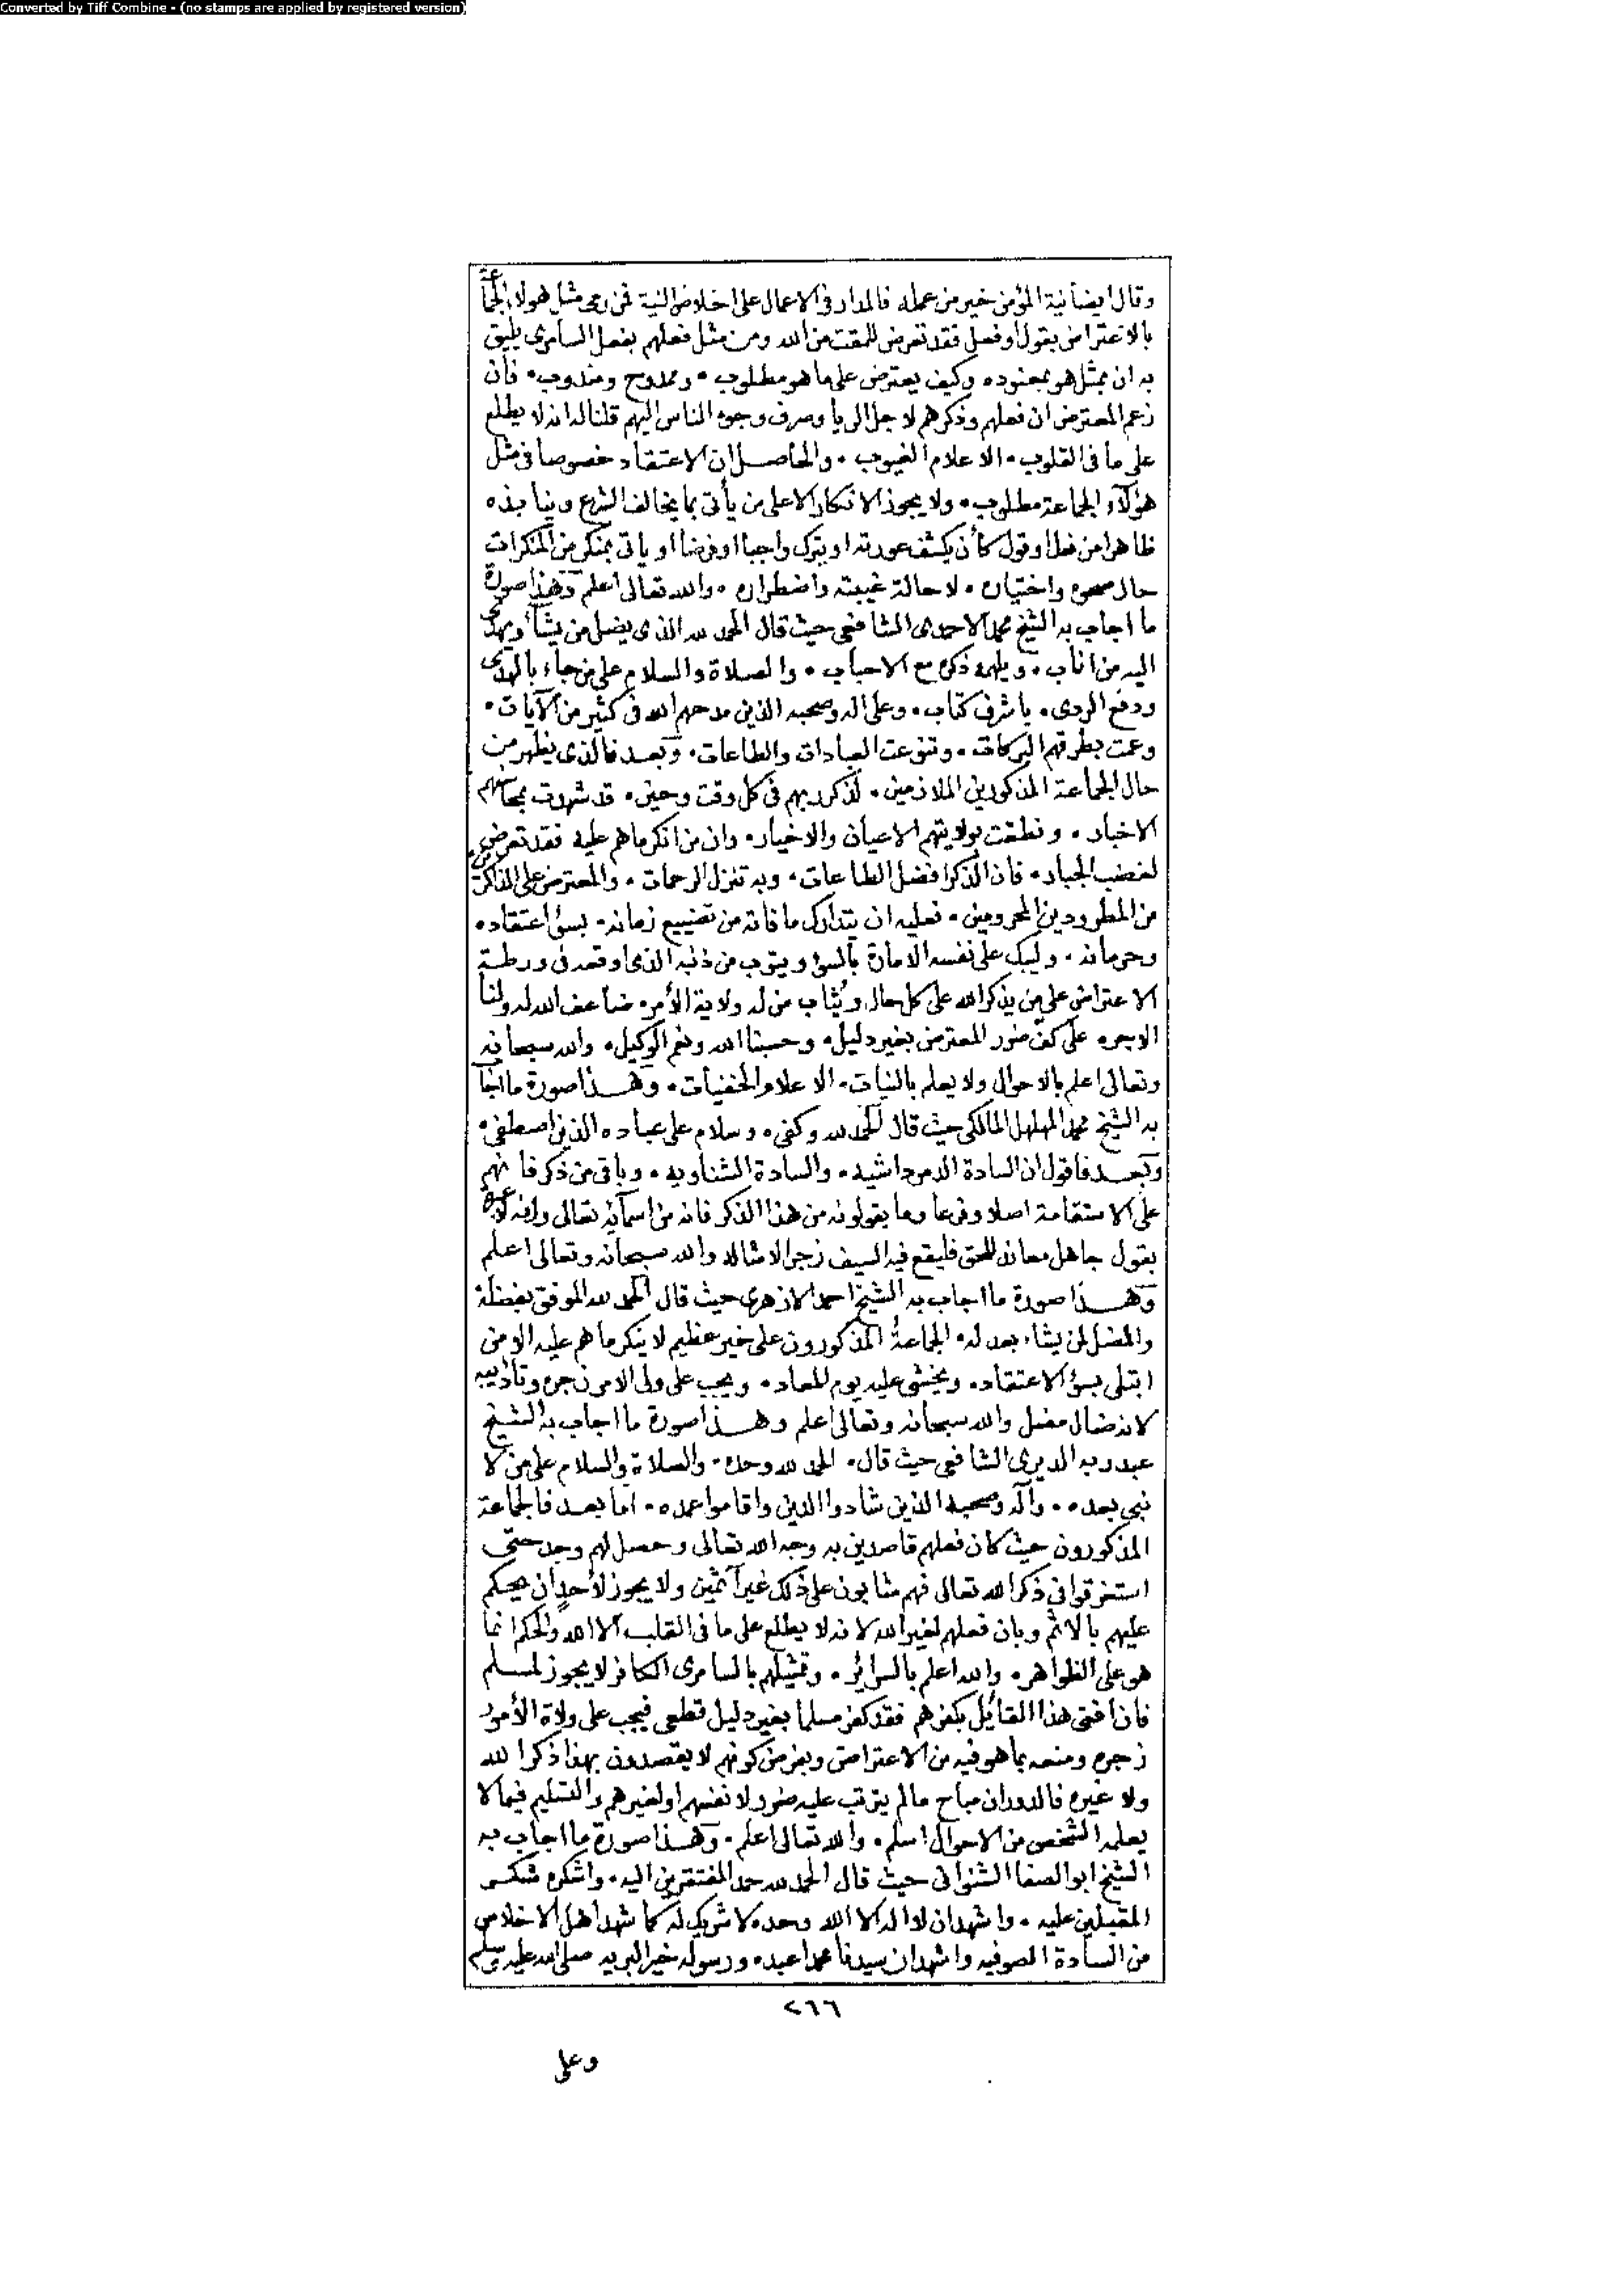 Converted by Tiff Combine - (no stamps are applied by registered version)
وقال ايضا نية المؤمن خير من عمله فالمدار في الاعمال على اخلاص النية فمن رمى مثل هولاء الجماعة
بالاعتراض بقول او فعل فقد تعرض للمقت من الله ومن مثل فعلهم بفعل السامرى يليق
به ان يمثل هو بجنوده وكيف يعترض على ما هو مطلوب • وممدوح ومندوب • فان
زعم المعترض ان فعلهم وذكرهم لاجل الريا وصرف وجوه الناس اليهم قلنا له انه لا يطلع
على ما في القلوب • الا علام الغيوب • والحاصل ان الاعتقاد خصوصا في مثل
هؤلآء الجماعة مطلوب • ولا يجوز الانكار الا على من يأتى بما يخالف الشرع وينابذه
ظاهرا من فعل او قول كأن يكشف عورته او يترك واجبا او فرضا او ياتى بمنكر من المنكرات
حال صحوه واختياره • لا حالة غيبته واضطراره • والله تعالى اعلم وهذا صورة
ما اجاب به الشيخ محمد الاحمدى الشافعى حيث قال الحمد لله الذى يضل من يشآء ويهدى
اليه من اناب • ويلهمه ذكره مع الاحباب • والصلاة والسلام على من جاء بالهدى
ودفع الردى • باشرف كتاب • وعلى اله وصحبه الذين مدحهم الله في كثير من الآيات •
وعمت بطرقهم البركات • وتنوعت العبادات والطاعات • وبعد فالذى يظهر من
حال الجماعة المذكورين الملازمين • لذكر ربهم في كل وقت وحين • قد شهدت بمحاسنهم
الاخبار • ونطقت بولايتهم الاعيان والاخيار • وان من انكر ما هم عليه فقد تعرض
لغضب الجبار • فان الذكر افضل الطاعات • وبه تنزل الرحمات • والمعترض على الذاكرين
من المطرودين المحرومين • فعليه ان يتدارك ما فاته من تضييع زمانه • بسؤ اعتقاده •
وحرمانه • وليبك على نفسه الامارة بالسؤ ويتوب من ذنبه الذى اوقعه في ورطة
الاعتراض على من يذكر الله على كل حال ويثاب من له ولاية الأمر • ضاعف الله له ولنا
الاجر • على كف ضرر المعترض بغير دليل • وحسبنا الله ونعم الوكيل • والله سبحانه
وتعالى اعلم بالاحوال ولا يعلم بالنيات • الا علام الخفيات • وهـذا صورة ما اجاب
به الشيخ محمد المهلهل المالكى حيث قال الحمد لله وكفى • وسلام على عباده الذين اصطفى •
وبعـد فاقول ان السادة الدمرداشيه • والسادة الشناويه • وباقى من ذكر فانهم
على الاستقامة اصلا وفرعا وما يقولونه من هذا الذكر فانه من اسمآئه تعالى وانه لا عبرة
بقول جاهل معاند للحق فليقع فيه السيف زجرا لامثاله والله سبحانه وتعالى اعلم
وهـذا صورة ما اجاب به الشيخ احمد الازهرى حيث قال الحمد لله الموفق بفضله
والمضل لمن يشاء بعدله • الجماعة المذكورون على خير عظيم لا ينكر ما هم عليه الا من
ابتلى بسؤ الاعتقاد • ويخشى عليه يوم المعاد • ويجب على ولى الامر زجره وتأديبه
لانه ضال مضل والله سبحانه وتعالى اعلم وهـذا صورة ما اجاب به الشيخ
عبد ربه الديرى الشافعى حيث قال • الحمد لله وحده • والصلاة والسلام على من لا
نبى بعده • • وآله وصحبه الذين شادوا الدين واقاموا عمده • اما بعـد فالجماعة
المذكورون حيث كان فعلهم قاصدين به وجه الله تعالى وحصل لهم وجد حتى
استغرقوا في ذكر الله تعالى فهم مثابون على ذلك غير آثمين ولا يجوز لأحد ان يحكم
عليهم بالاثم وبان فعلهم لغير الله لانه لا يطلع على ما في القلب الا الله والحكم انما
هو على الظواهر • والله اعلم بالسرائر • وتمثيلهم بالسامرى الكافر لا يجوز لمسلم
فان افتى هذا القائل بكفرهم فقد كفر مسلما بغير دليل قطعى فيجب على ولاة الأمور
زجره ومنعه بما هو فيه من الاعتراض وبفرض كونهم لا يقصدون بهذا ذكر الله
ولا غيره فالدوران مباح ما لم يترتب عليه ضرر لانفسهم او لغيرهم والتسليم فيما لا
يعلمه الشخص من الاحوال اسلم • والله تعالى اعلم • وهـذا صورة ما اجاب به
الشيخ ابو الصفا الشنوانى حيث قال الحمد لله حمد المفتقرين اليه • واشكره شكـر
المقبلين عليه • واشهد ان لا اله الا الله وحده لا شريك له كما شهد اهل الاخلاص
من السادة الصوفيه واشهد ان سيدنا محمدا عبده ورسوله خير البريه صلى الله عليه وسلم
٢٦٦
وعلى